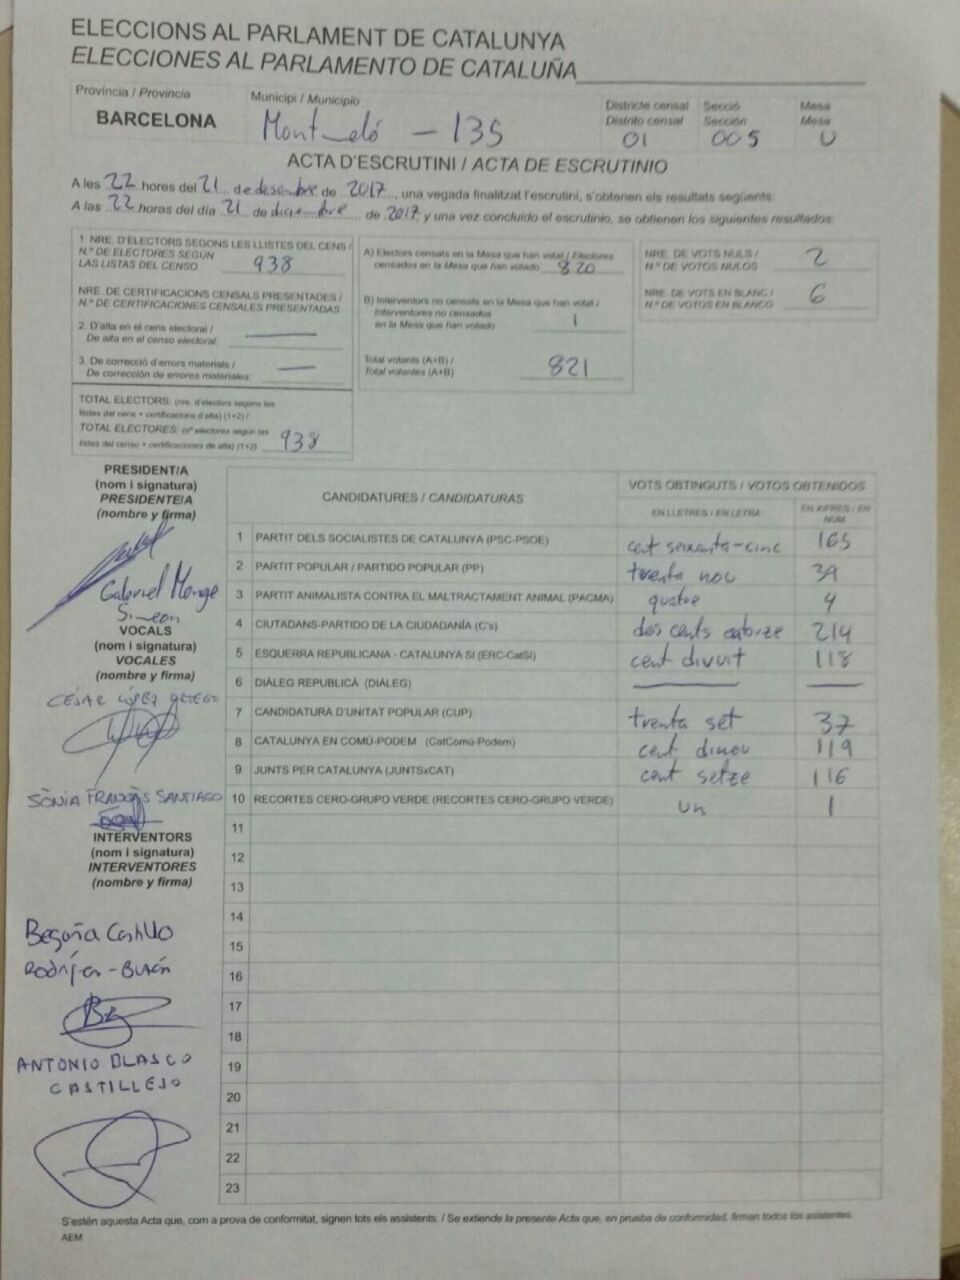 ELECCIONS AL PARLAMENT DE CATALUNYA
ELECCIONES AL PARLAMENTO DE CATALUÑA
Província / Provincia
BARCELONA
Municipi / Municipio
Montmeló - 135
Districte censal
Distrito censal
01
Secció
Sección
005
Mesa
Mesa
U
ACTA D'ESCRUTINI / ACTA DE ESCRUTINIO
A les 22 hores del 21 de desembre de 2017, una vegada finalitzat l'escrutini, s'obtenen els resultats següents:
A las 22 horas del día 21 de diciembre de 2017, y una vez concluido el escrutinio, se obtienen los siguientes resultados:
1. NRE. D'ELECTORS SEGONS LES LLISTES DEL CENS /
N.º DE ELECTORES SEGÚN
LAS LISTAS DEL CENSO 938
NRE. DE CERTIFICACIONS CENSALS PRESENTADES /
N.º DE CERTIFICACIONES CENSALES PRESENTADAS
2. D'alta en el cens electoral /
De alta en el censo electoral: —
3. De correcció d'errors materials /
De corrección de errores materiales: —
TOTAL ELECTORS: (nre. d'electors segons les
llistes del cens + certificacions d'alta) (1+2) /
TOTAL ELECTORES: (nº electores según las
listas del censo + certificaciones de alta) (1+2) 938
A) Electors censats en la Mesa que han votat / Electores
censados en la Mesa que han votado 820
B) Interventors no censats en la Mesa que han votat /
Interventores no censados
en la Mesa que han votado 1
Total votants (A+B) /
Total votantes (A+B) 821
NRE. DE VOTS NULS /
N.º DE VOTOS NULOS 2
NRE. DE VOTS EN BLANC /
N.º DE VOTOS EN BLANCO 6
PRESIDENT/A
(nom i signatura)
PRESIDENTE/A
(nombre y firma)
Gabriel Monge
Simeon
VOCALS
(nom i signatura)
VOCALES
(nombre y firma)
CÉSAR LÓPEZ ORTEGO
SÒNIA FRANCÉS SANTIAGO
INTERVENTORS
(nom i signatura)
INTERVENTORES
(nombre y firma)
Begoña Castillo
ANTONIO BLASCO
CASTILLEJO
CANDIDATURES / CANDIDATURAS
VOTS OBTINGUTS / VOTOS OBTENIDOS
EN LLETRES / EN LETRA
EN XIFRES / EN NÚM.
1 PARTIT DELS SOCIALISTES DE CATALUNYA (PSC-PSOE) cent seixanta-cinc 165
2 PARTIT POPULAR / PARTIDO POPULAR (PP) trenta nou 39
3 PARTIT ANIMALISTA CONTRA EL MALTRACTAMENT ANIMAL (PACMA) quatre 4
4 CIUTADANS-PARTIDO DE LA CIUDADANÍA (C's) dos cents catorze 214
5 ESQUERRA REPUBLICANA - CATALUNYA SI (ERC-CatSí) cent divuit 118
6 DIÀLEG REPUBLICÀ (DIÀLEG) — —
7 CANDIDATURA D'UNITAT POPULAR (CUP) trenta set 37
8 CATALUNYA EN COMÚ-PODEM (CatComú-Podem) cent dinou 119
9 JUNTS PER CATALUNYA (JUNTSxCAT) cent setze 116
10 RECORTES CERO-GRUPO VERDE (RECORTES CERO-GRUPO VERDE) un 1
11
12
13
14
15
16
17
18
19
20
21
22
23
S'estén aquesta Acta que, com a prova de conformitat, signen tots els assistents. / Se extiende la presente Acta que, en prueba de conformidad, firman todos los asistentes.
AEM